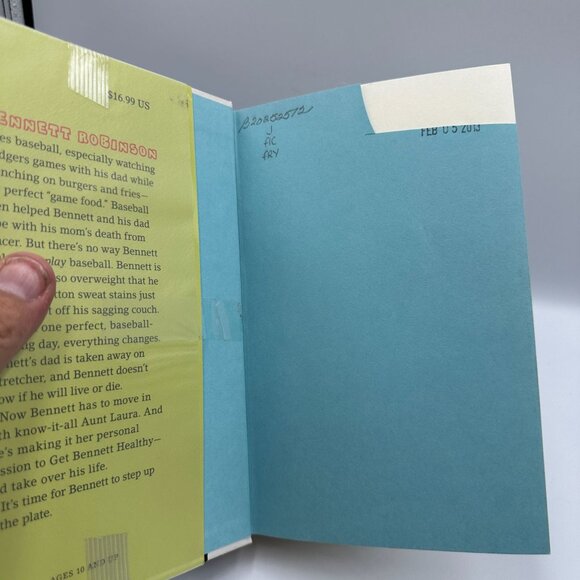 $16.99 US
ENNETT ROBINSON
es baseball, especially watching
dgers games with his dad while
nching on burgers and fries—
perfect "game food." Baseball
en helped Bennett and his dad
pe with his mom's death from
ncer. But there's no way Bennett
play baseball. Bennett is
so overweight that he
tton sweat stains just
t off his sagging couch.
one perfect, baseball-
ng day, everything changes.
nett's dad is taken away on
tretcher, and Bennett doesn't
ow if he will live or die.
Now Bennett has to move in
th know-it-all Aunt Laura. And
e's making it her personal
ssion to Get Bennett Healthy—
d take over his life.
It's time for Bennett to step up
the plate.
AGES 10 AND UP
B20852572
J
AC
FRY
FEB 05 2013